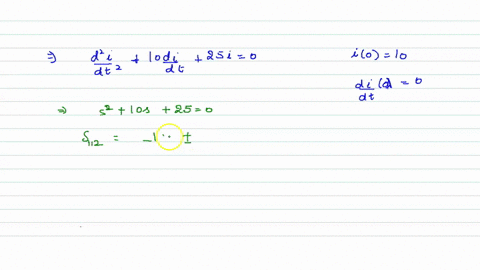 ⇒ d²i/dt² + 10 di/dt + 25i = 0
i(0) = 10
di/dt (0) = 0
⇒ s² + 10s + 25 = 0
S₁,₂ = -1 ±